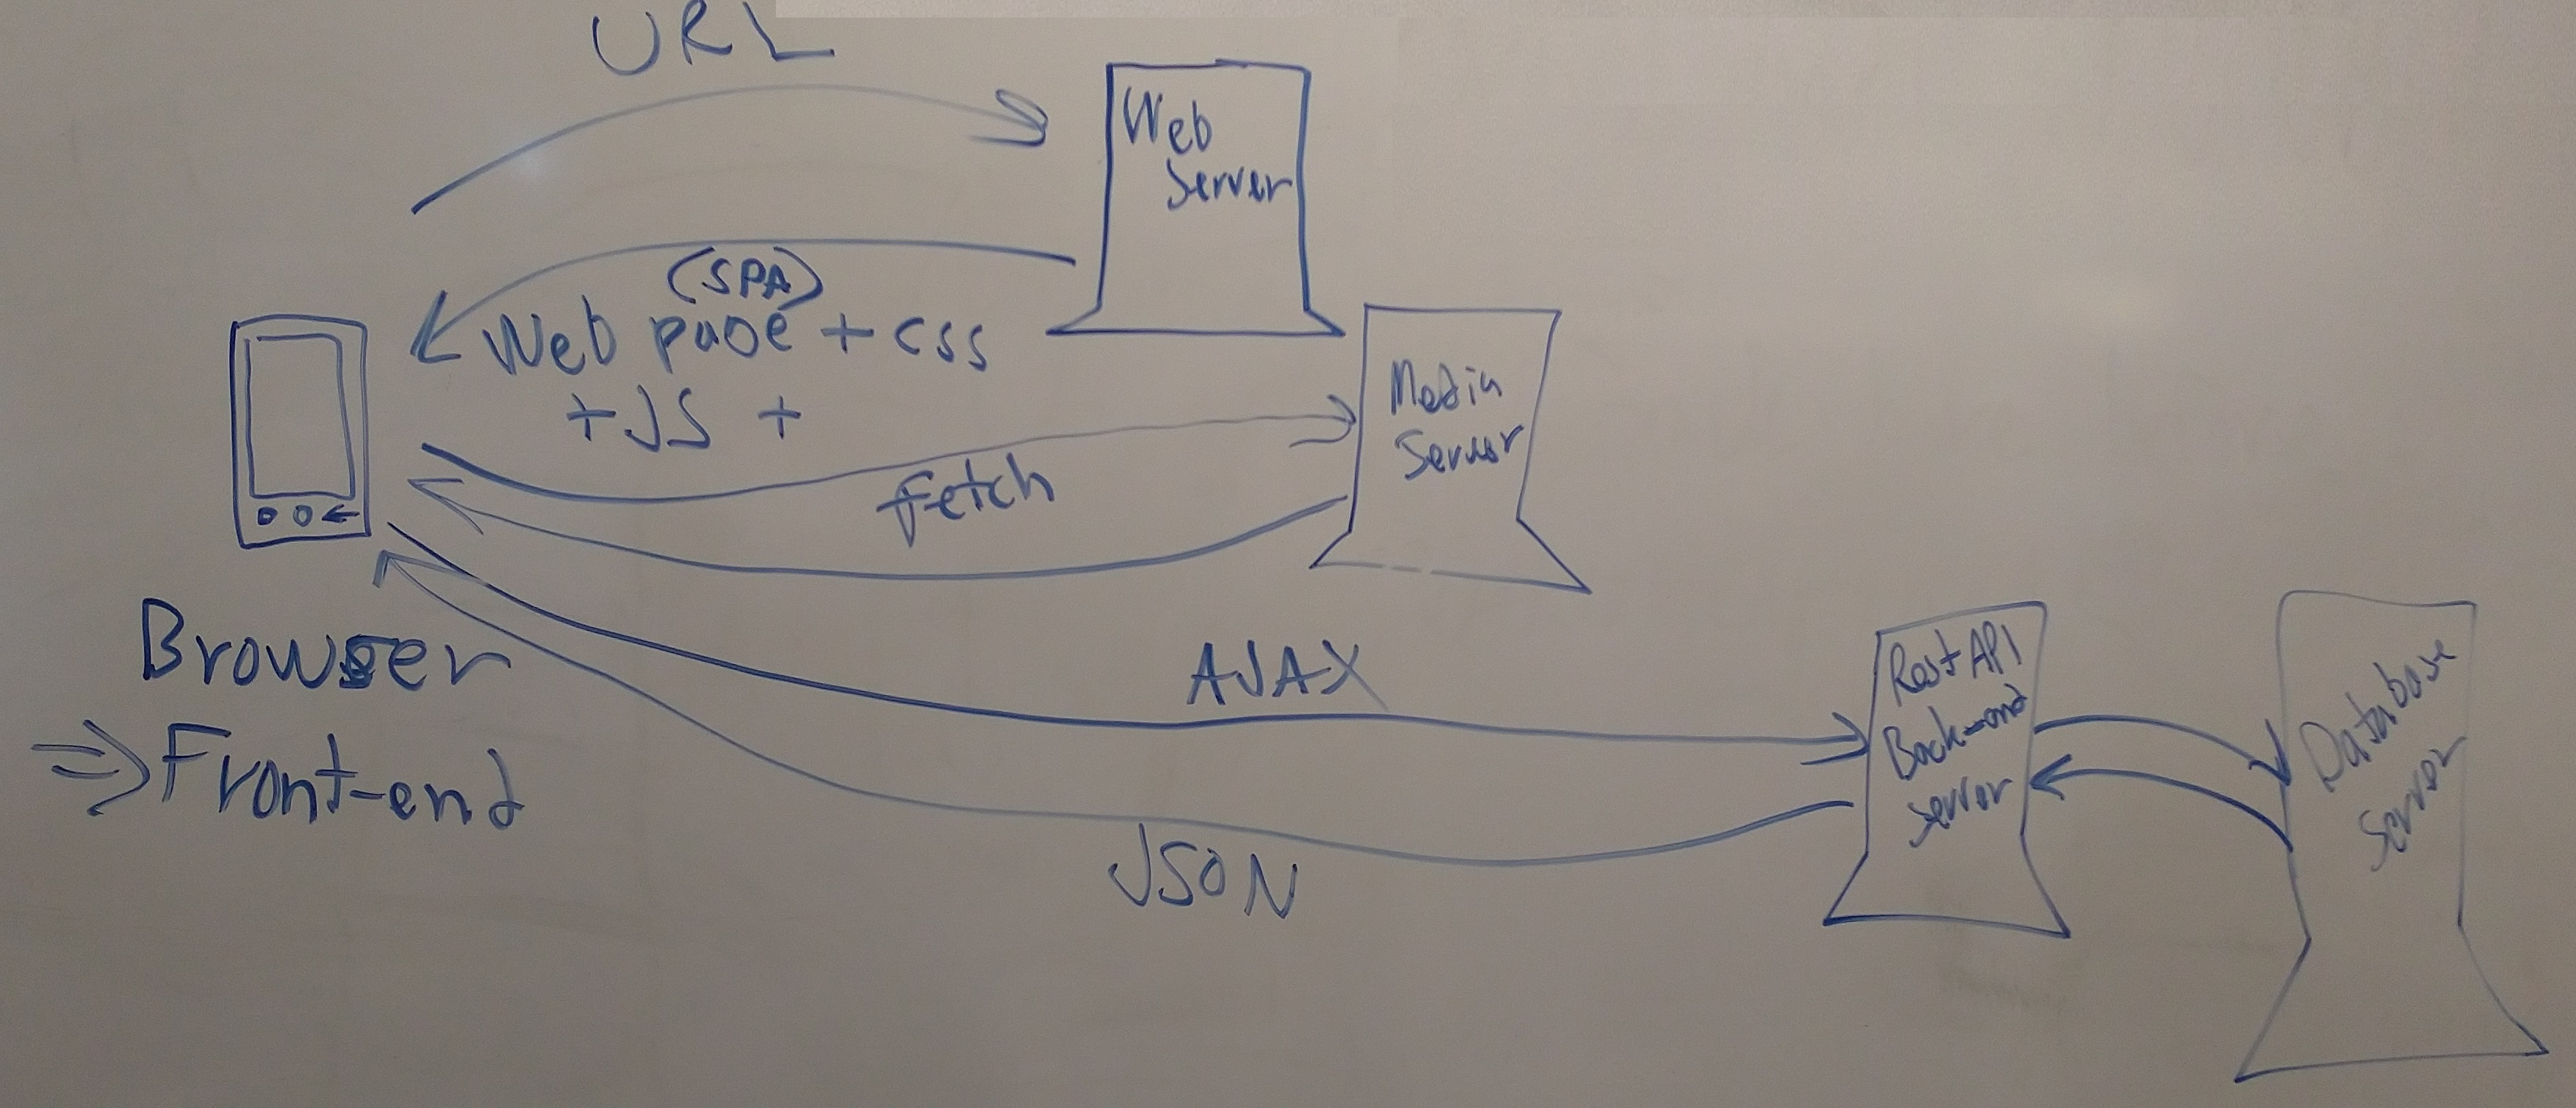 URL
Web
Server
(SPA)
Web page + css
+ JS +
Media
Server
fetch
Browser
⇒ Front-end
AJAX
JSON
Rest API
Back-end
server
Database
Server